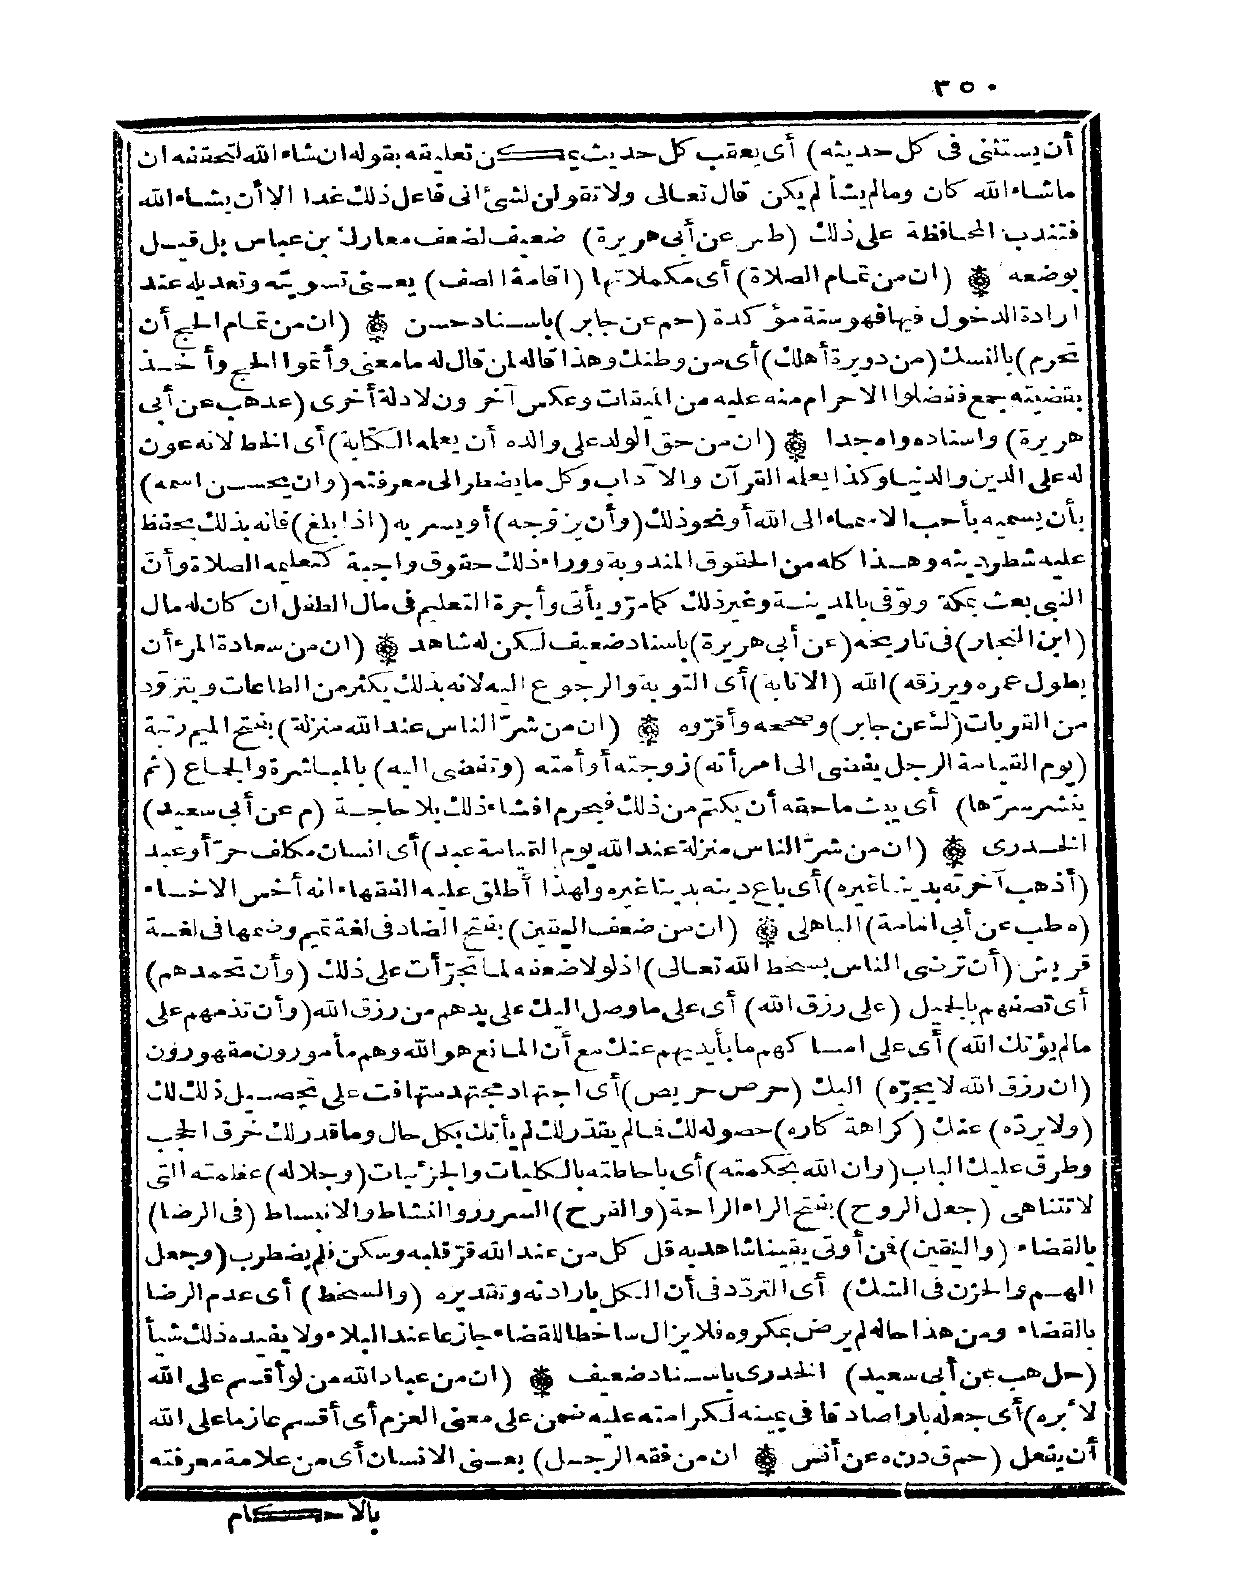 ٣٥٠
أن يستثنى فى كل حديثه) أى يعقب كل حديث يمكن تعليقه بقوله ان شاء الله لتحققه ان
ماشاء الله كان ومالم يشأ لم يكن قال تعالى ولا تقولن لشئ انى فاعل ذلك غدا الا أن يشاء الله
فتندب المحافظة على ذلك (طس عن أبى هريرة) ضعيف لضعف معارك بن عباس بل قيل
بوضعه ۞ (ان من تمام الصلاة) أى مكملاتها (اقامة الصف) يعنى تسويته وتعديله عند
ارادة الدخول فيها فهو سنة مؤكدة (حم عن جابر) باسناد حسن ۞ (ان من تمام الحج أن
تحرم) بالنسك (من دويرة أهلك) أى من وطنك وهذا قاله لمن قال له ما معنى وأتموا الحج وأخذ
بقضيته جمع ففضلوا الاحرام منه عليه من الميقات وعكس آخرون لادلة أخرى (عد هب عن أبى
هريرة) واسناده واه جدا ۞ (ان من حق الولد على والده أن يعلمه الكتابة) أى الخط لانه عون
له على الدين والدنيا وكذا يعلمه القرآن والآداب وكل ما يضطر الى معرفته (وان يحسن اسمه)
بأن يسميه بأحب الاسماء الى الله أو نحو ذلك (وأن يزوجه) أو يسريه (اذا بلغ) فانه بذلك يحفظ
عليه شطر دينه وهذا كله من الحقوق المندوبة ووراء ذلك حقوق واجبة كتعليمه الصلاة وأن
النبى بعث بمكة وتوفى بالمدينة وغير ذلك كما مر ويأتى وأجرة التعليم فى مال الطفل ان كان له مال
(ابن النجار) فى تاريخه (عن أبى هريرة) باسناد ضعيف لكن له شاهد ۞ (ان من سعادة المرء أن
يطول عمره ويرزقه) الله (الانابة) أى التوبة والرجوع اليه لانه بذلك يكثر من الطاعات ويتزود
من القربات (ك عن جابر) وصححه وأقروه ۞ (ان من شرّ الناس عند الله منزلة) بفتح الميم رتبة
(يوم القيامة الرجل يفضى الى امرأته) زوجته أو أمته (وتفضى اليه) بالمباشرة والجماع (ثم
ينشر سرّها) أى يبث ما حقه أن يكتم من ذلك فيحرم افشاء ذلك بلا حاجة (م عن أبى سعيد)
الخدرى ۞ (ان من شرّ الناس منزلة عند الله يوم القيامة عبد) أى انسان مكلف حرّ أو عبد
(أذهب آخرته بدنيا غيره) أى باع دينه بدنيا غيره ولهذا أطلق عليه الفقهاء انه أخس الاخساء
(ه طب عن أبى امامة) الباهلى ۞ (ان من ضعف اليقين) بفتح الضاد فى لغة تميم وضمها فى لغة
قريش (أن ترضى الناس بسخط الله تعالى) اذ لولا ضعفه لما تجرّأت على ذلك (وأن تحمدهم)
أى تصفهم بالجميل (على رزق الله) أى على ما وصل اليك على يدهم من رزق الله (وأن تذمهم على
مالم يؤتك الله) أى على امساكهم ما بأيديهم عنك مع أن المانع هو الله وهم مأمورون مقهورون
(ان رزق الله لا يجرّه) اليك (حرص حريص) أى اجتهاد مجتهد متهافت على تحصيل ذلك لك
(ولا يردّه) عنك (كراهة كاره) حصوله لك فمالم يقدر لك لم يأتك بكل حال وما قدر لك خرق الحجب
وطرق عليك الباب (وان الله بحكمته) أى باحاطته بالكليات والجزئيات (وجلاله) عظمته التى
لا تتناهى (جعل الروح) بفتح الراء الراحة (والفرح) السرور والنشاط والانبساط (فى الرضا)
بالقضاء (واليقين) فمن أوتى يقينا شاهد به قل كل من عند الله قرّ قلبه وسكن فلم يضطرب (وجعل
الهم والحزن فى الشك) أى التردّد فى أن الكل بارادته وتقديره (والسخط) أى عدم الرضا
بالقضاء ومن هذا حاله لم يرض بمكروه فلا يزال ساخطا للقضاء جازعا عند البلاء ولا يفيده ذلك شيأ
(حل هب عن أبى سعيد) الخدرى باسناد ضعيف ۞ (ان من عباد الله من لو أقسم على الله
لأبره) أى جعله بارا صادقا فى يمينه لكرامته عليه ضمن على معنى العزم أى أقسم عازما على الله
أن يفعل (حم ق د ن ه عن أنس ۞ ان من فقه الرجل) يعنى الانسان أى من علامة معرفته
بالاحكام